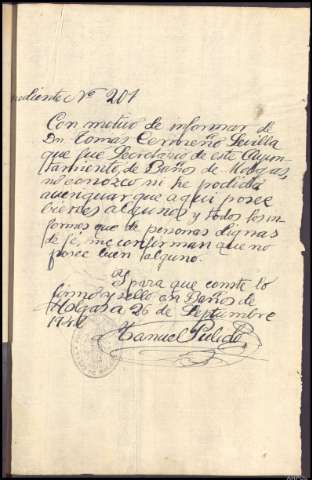 ediente Nº 201
Con motivo de informar de
Dn. Tomas Sevilla
que fue Secretario de este Ayun-
tamiento de Baños de Molgas,
no conozco ni he podido
averiguar que aqui posee
bienes algunos y todos los in-
formes que de personas dignas
de fé, me confirman que no
posee bien alguno.
Y para que conste lo
firmo y sello en Baños de
Molgas a 26 de Septiembre
Manuel Pulido